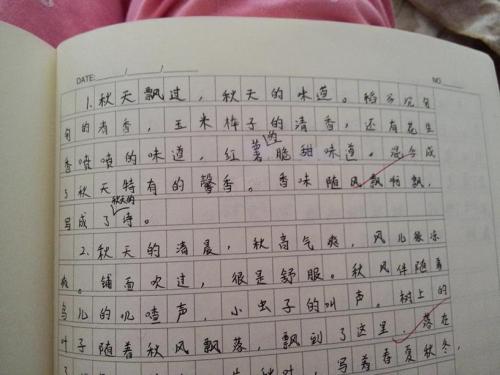 DATE: / / NO.
1. 秋天飘过，秋天的味道。稻子沉甸
甸的清香，玉米棒子的清香，还有花生
香喷喷的味道，红薯的脆甜味道。混合成
了秋天特有的馨香。香味随风飘呀飘，
写成了秋天的诗。
2. 秋天的清晨，秋高气爽，风儿很凉
爽。铺面吹过，很是舒服。秋风伴随着
鸟儿的叽喳声，小虫子的叫声。树上的
叶子随着秋风飘落，飘到了这里，落在
写着春夏秋冬，